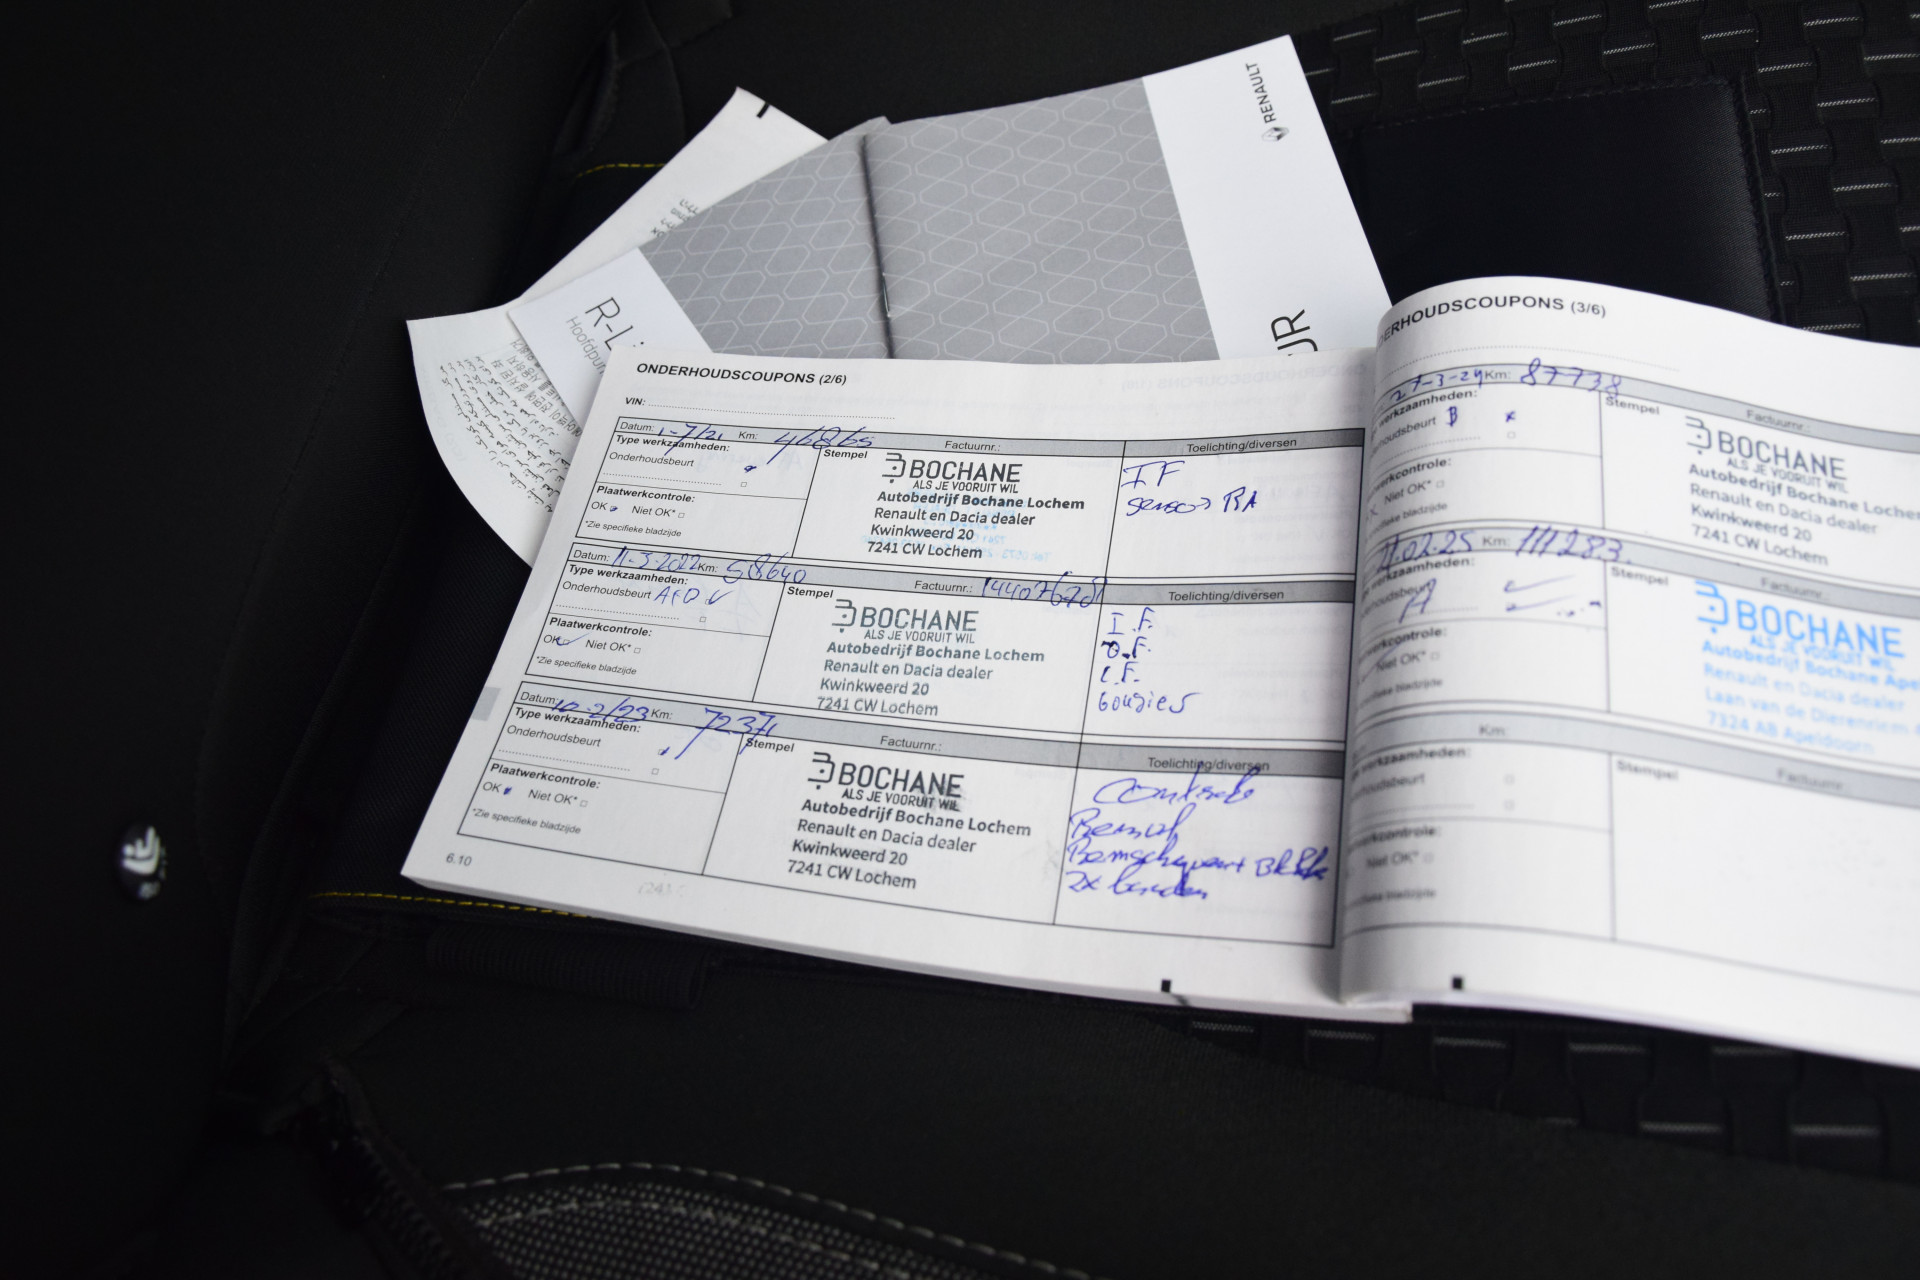 RENAULT
R-Li
Hoofdpun
UR
ONDERHOUDSCOUPONS (2/6)
VIN:
Datum: 1-7/21 Km: 46865 Factuurnr.: Toelichting/diversen
Type werkzaamheden:
Onderhoudsbeurt
Plaatwerkcontrole:
OK Niet OK*
*Zie specifieke bladzijde
Stempel
BOCHANE
ALS JE VOORUIT WIL
Autobedrijf Bochane Lochem
Renault en Dacia dealer
Kwinkweerd 20
7241 CW Lochem
IF
sensor RA
Datum: 11-3-2022 Km: 58640 Factuurnr.: Toelichting/diversen
Type werkzaamheden:
Onderhoudsbeurt
Plaatwerkcontrole:
OK Niet OK*
*Zie specifieke bladzijde
Stempel
BOCHANE
ALS JE VOORUIT WIL
Autobedrijf Bochane Lochem
Renault en Dacia dealer
Kwinkweerd 20
7241 CW Lochem
I.F.
O.F.
L.F.
Bougies
Datum: 10-2/23 Km: 72371 Factuurnr.: Toelichting/diversen
Type werkzaamheden:
Onderhoudsbeurt
Plaatwerkcontrole:
OK Niet OK*
*Zie specifieke bladzijde
Stempel
BOCHANE
ALS JE VOORUIT WIL
Autobedrijf Bochane Lochem
Renault en Dacia dealer
Kwinkweerd 20
7241 CW Lochem
2x banden
6.10
ERHOUDSCOUPONS (3/6)
27-3-24 Km: 87738
Factuurnr.:
erkzaamheden:
houdsbeurt B
erkcontrole:
Niet OK*
Stempel
BOCHANE
ALS JE VOORUIT WIL
Autobedrijf Bochane Lochem
Renault en Dacia dealer
Kwinkweerd 20
7241 CW Lochem
21.02.25 Km: 111283.
Factuurnr.:
erkzaamheden:
houdsbeurt A
erkcontrole:
Niet OK*
Stempel
BOCHANE
ALS JE VOORUIT WIL
Autobedrijf Bochane Ape
Renault en Dacia dealer
Laan van de Dierenriem
7324 AB Apeldoorn
Km:
Factuurnr.:
erkzaamheden:
houdsbeurt
erkcontrole:
Niet OK*
Stempel